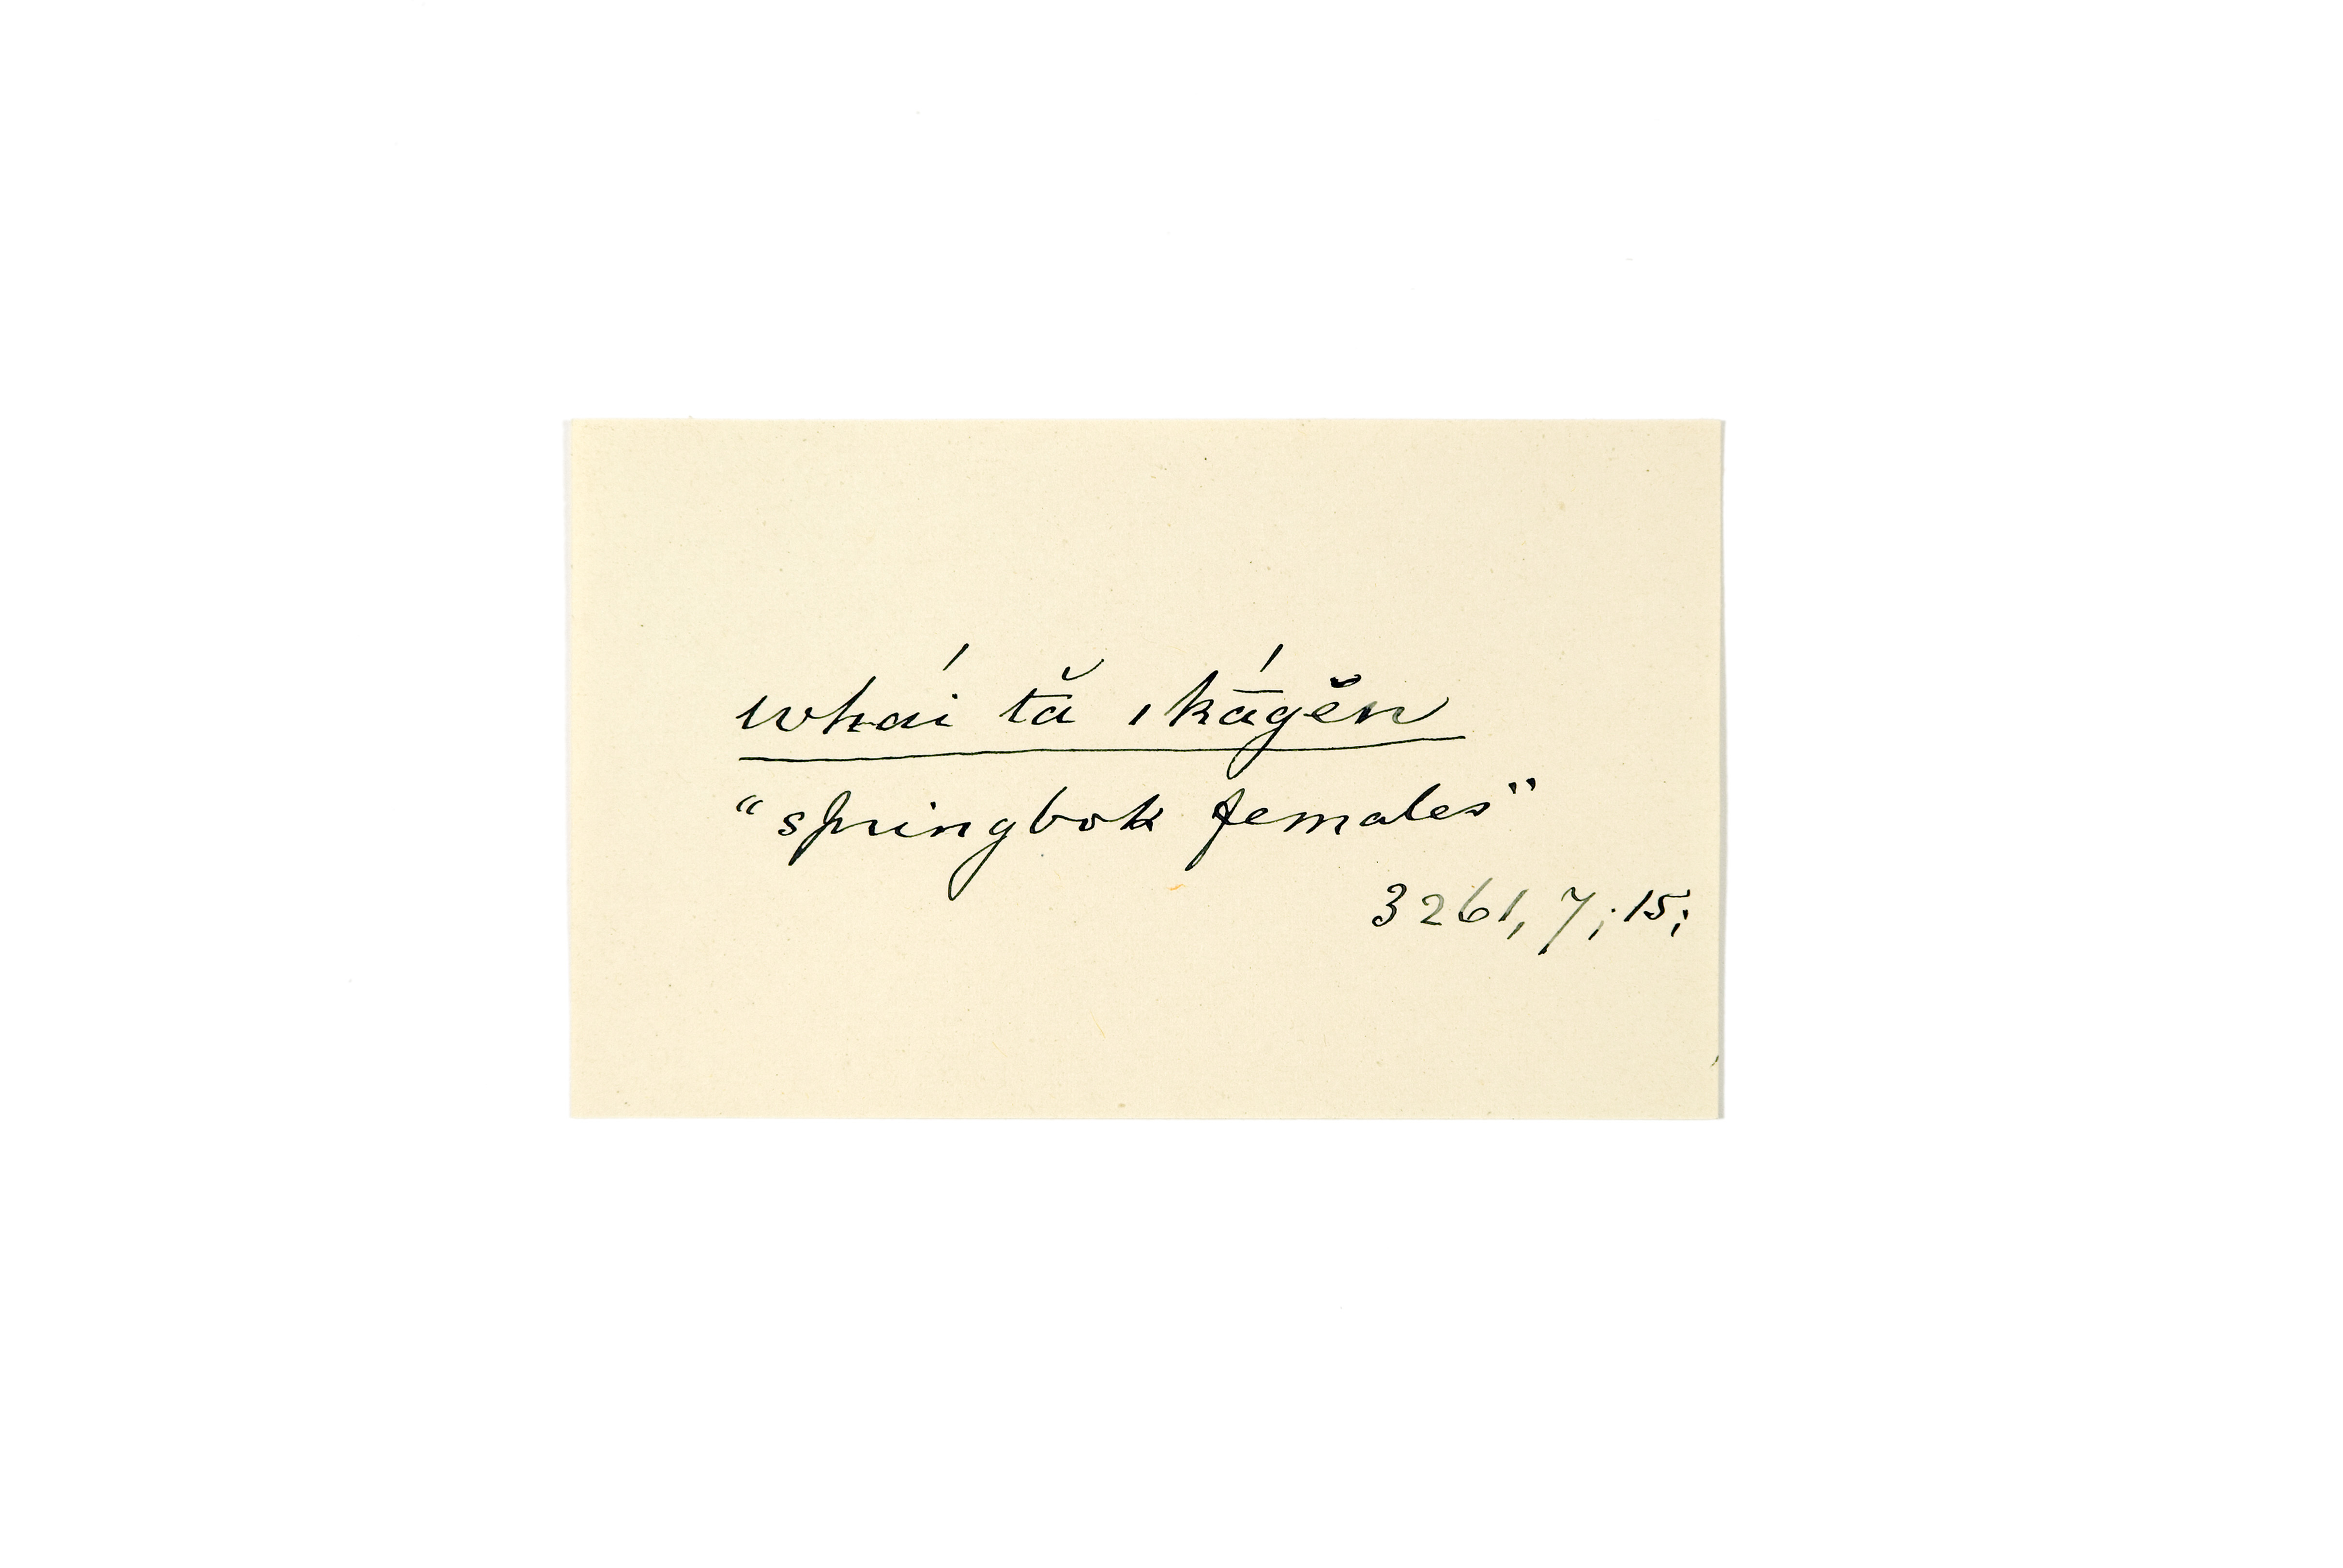 whái tă ıkā́gĕn
“springbok females”
3261, 7; 15;